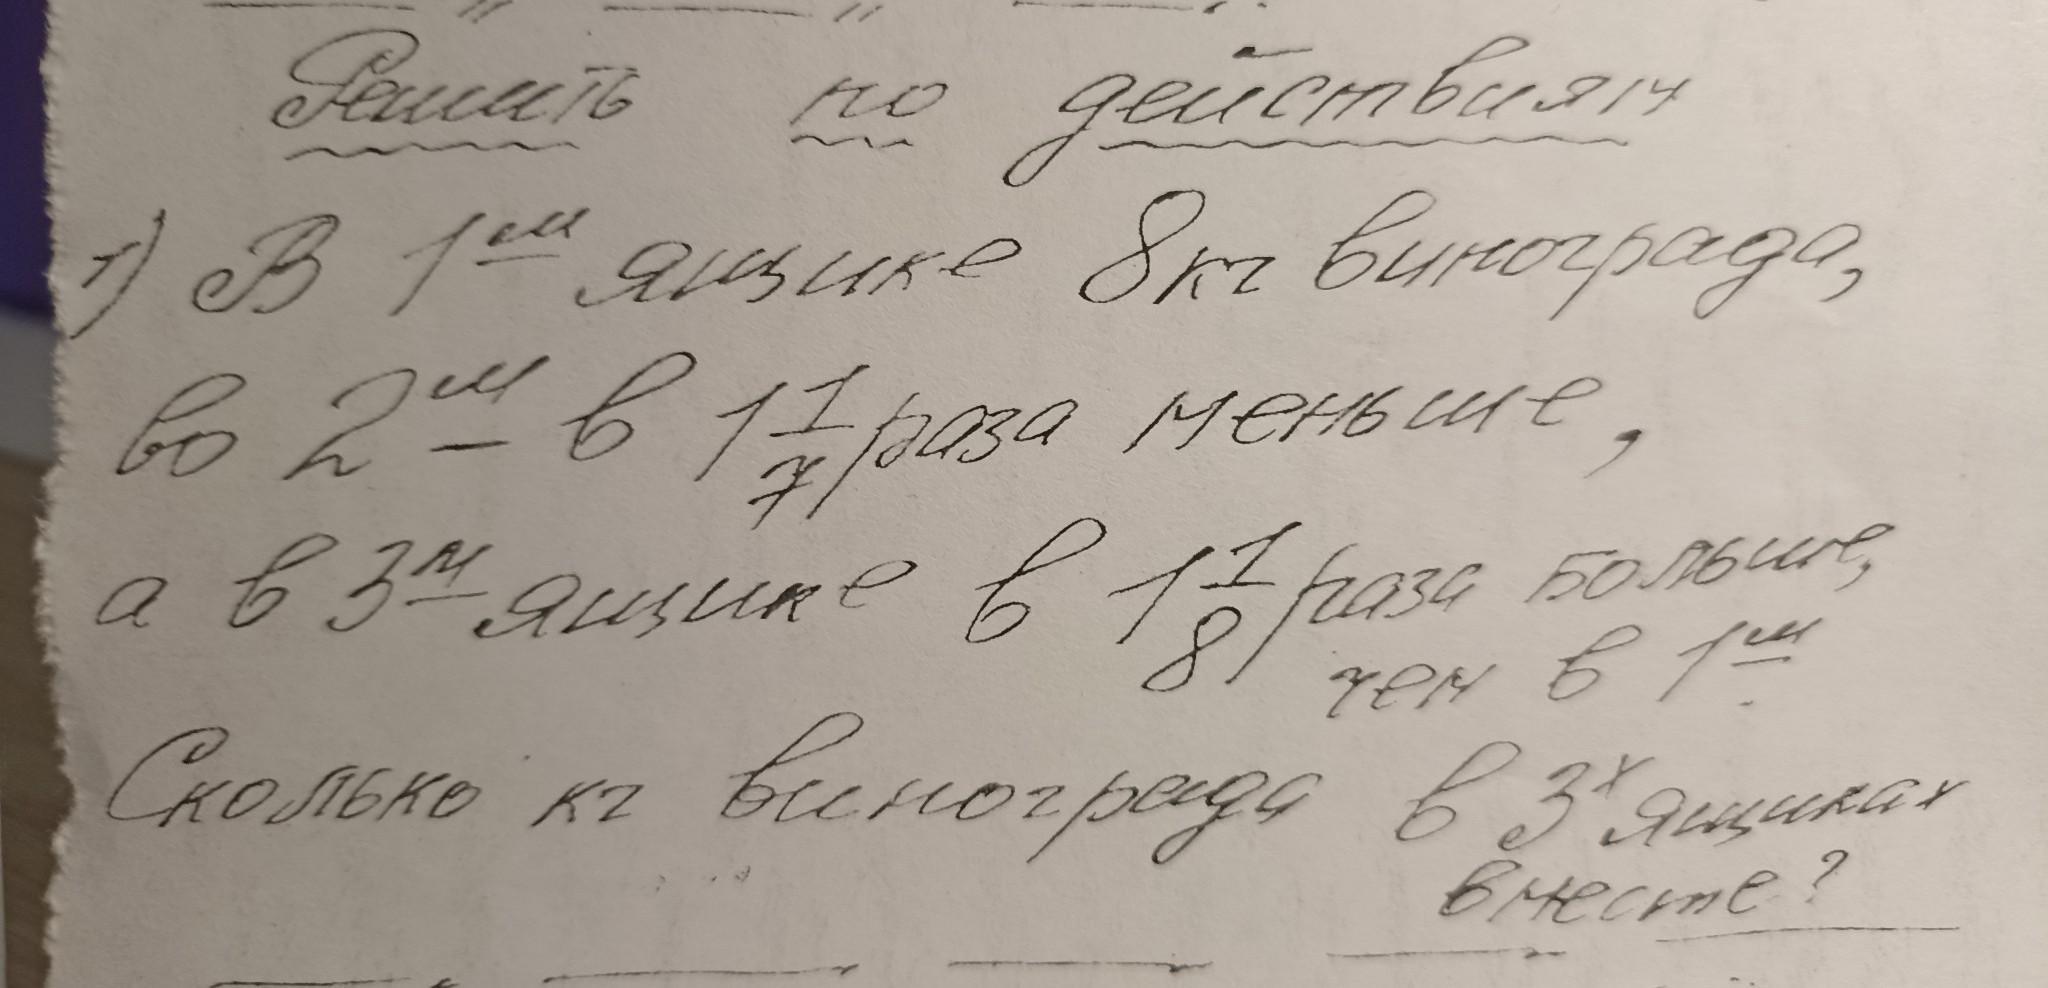 Решить по действиям
1) В 1м ящике 8 кг винограда,
во 2м – в 1 1/7 раза меньше,
а в 3м ящике в 1 1/8 раза больше,
чем в 1м.
Сколько кг винограда в 3х ящиках
вместе?